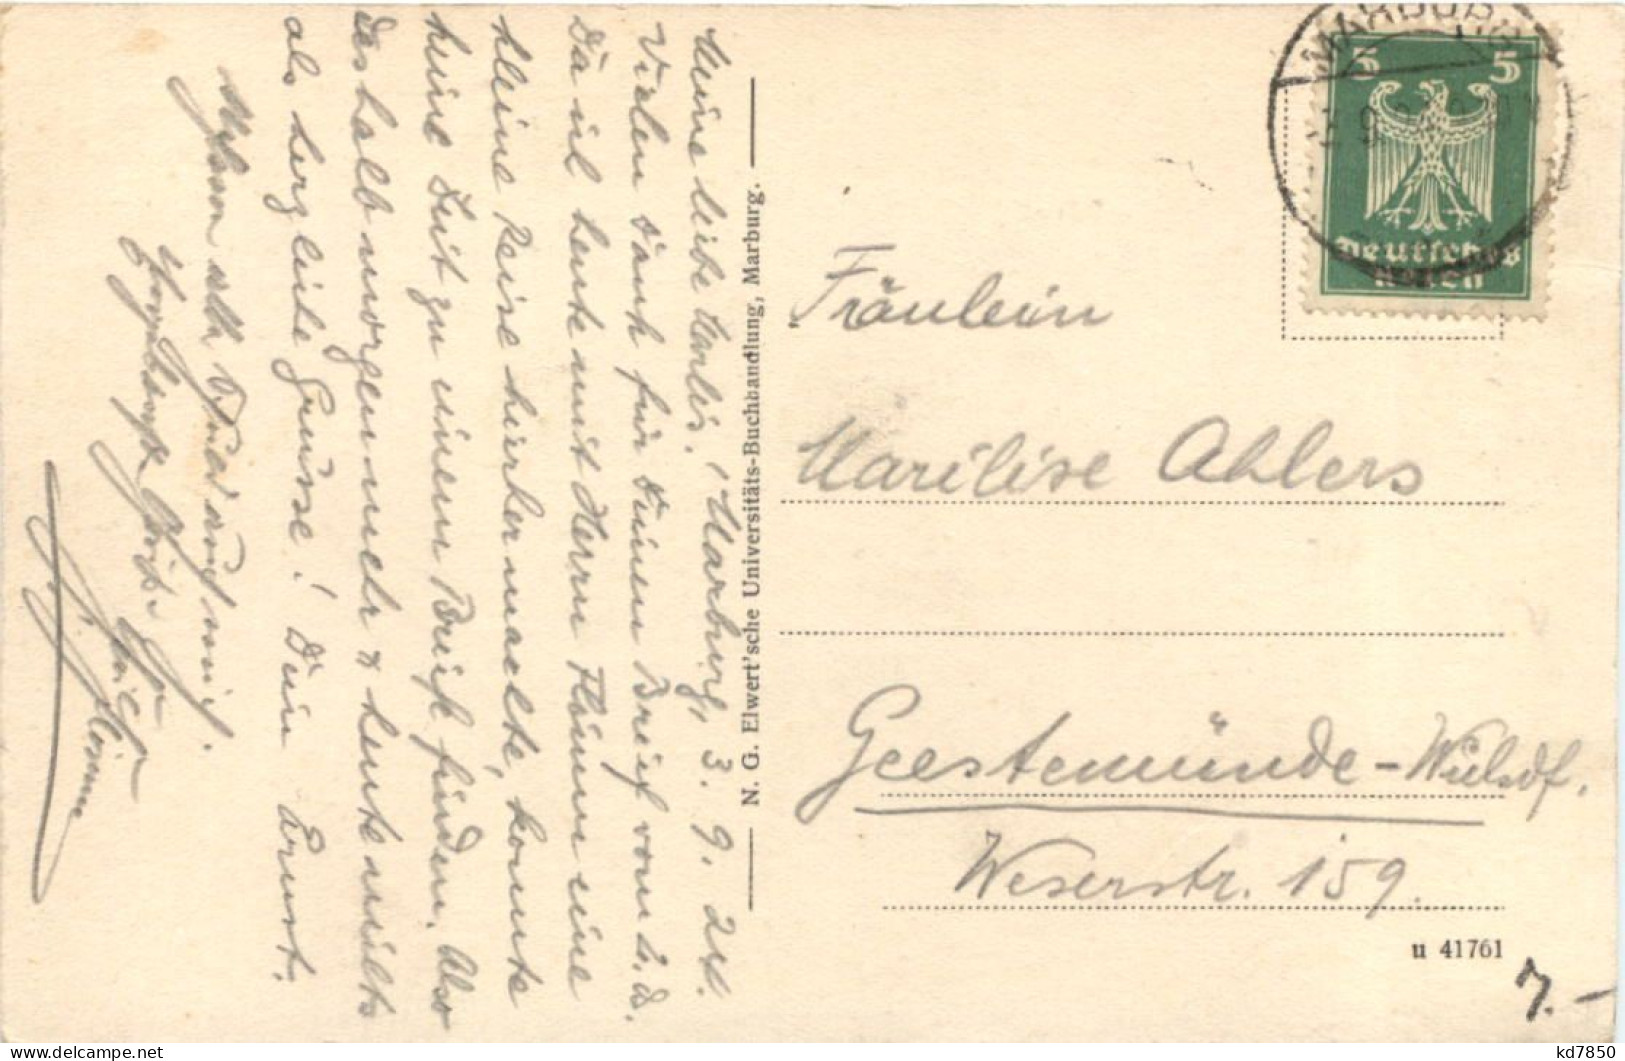 Meine liebe Marlis! Marburg, 3. 9. 24.
Vielen Dank für Deinen Brief vom 2. d.
Da ich heute mit Herrn Flömm eine
kleine Reise hierher machte, konnte
keine Zeit zu einem Brief finden. Also
deshalb morgen mehr & heute nichts
als herzliche Grüsse! Dein Ernst.
N. G. Elwert'sche Universitäts-Buchhandlung, Marburg.
MARBURG
5 5
Deutsches
Reich
Fräulein
Marilise Ahlers
Geestemünde-Wulsdf.
Weserstr. 159.
u 41761
7.-
kd7850